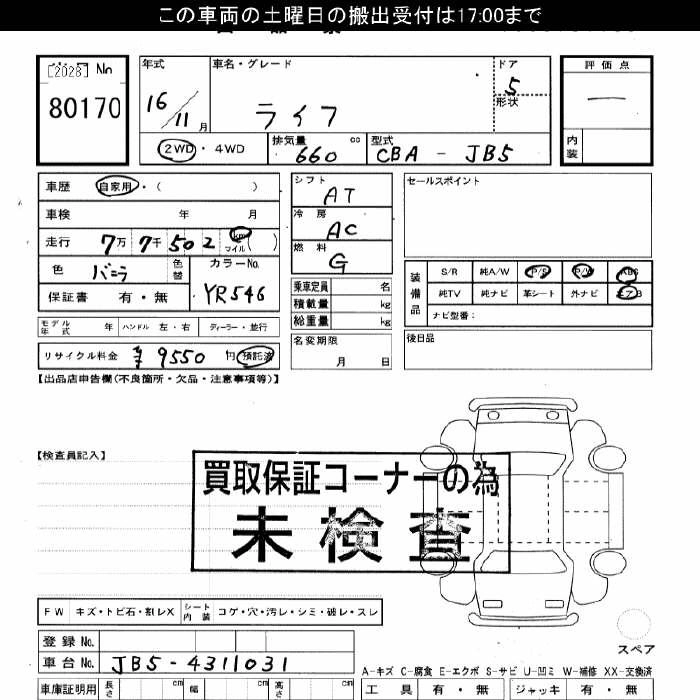 この車両の土曜日の搬出受付は17:00まで
[2028] No
80170
年式 車名・グレード ドア 評価点
16/11月 ライフ 5 —
形状
2WD・4WD 排気量 660 cc 型式 CBA - JB5 内装
車歴 自家用・( ) シフト AT セールスポイント
車検 年 月 冷房 AC
走行 7万7千502 km マイル ( ) 燃料 G
色 バニラ 色替 カラーNo. YR546
装備品 S/R 純A/W P/S P/W ABS
乗車定員 名
保証書 有・無 積載量 kg 純TV 純ナビ 革シート 外ナビ エアB
総重量 kg ナビ型番:
モデル年式 年 ハンドル 左・右 ディーラー・並行
名変期限 月 日 後日品
リサイクル料金 ¥9550 円 預託済
【出品店申告欄(不良箇所・欠品・注意事項等)】
【検査員記入】
買取保証コーナーの為
未検査
FW キズ・トビ石・割レX シート内装 コゲ・穴・汚レ・シミ・破レ・スレ
登録No.
スペア
車台No. JB5-4311031
A-キズ C-腐食 E-エクボ S-サビ U-凹ミ W-補修 XX-交換済
車庫証明用 長さ cm 幅 cm 高さ cm 工具 有・無 ジャッキ 有・無